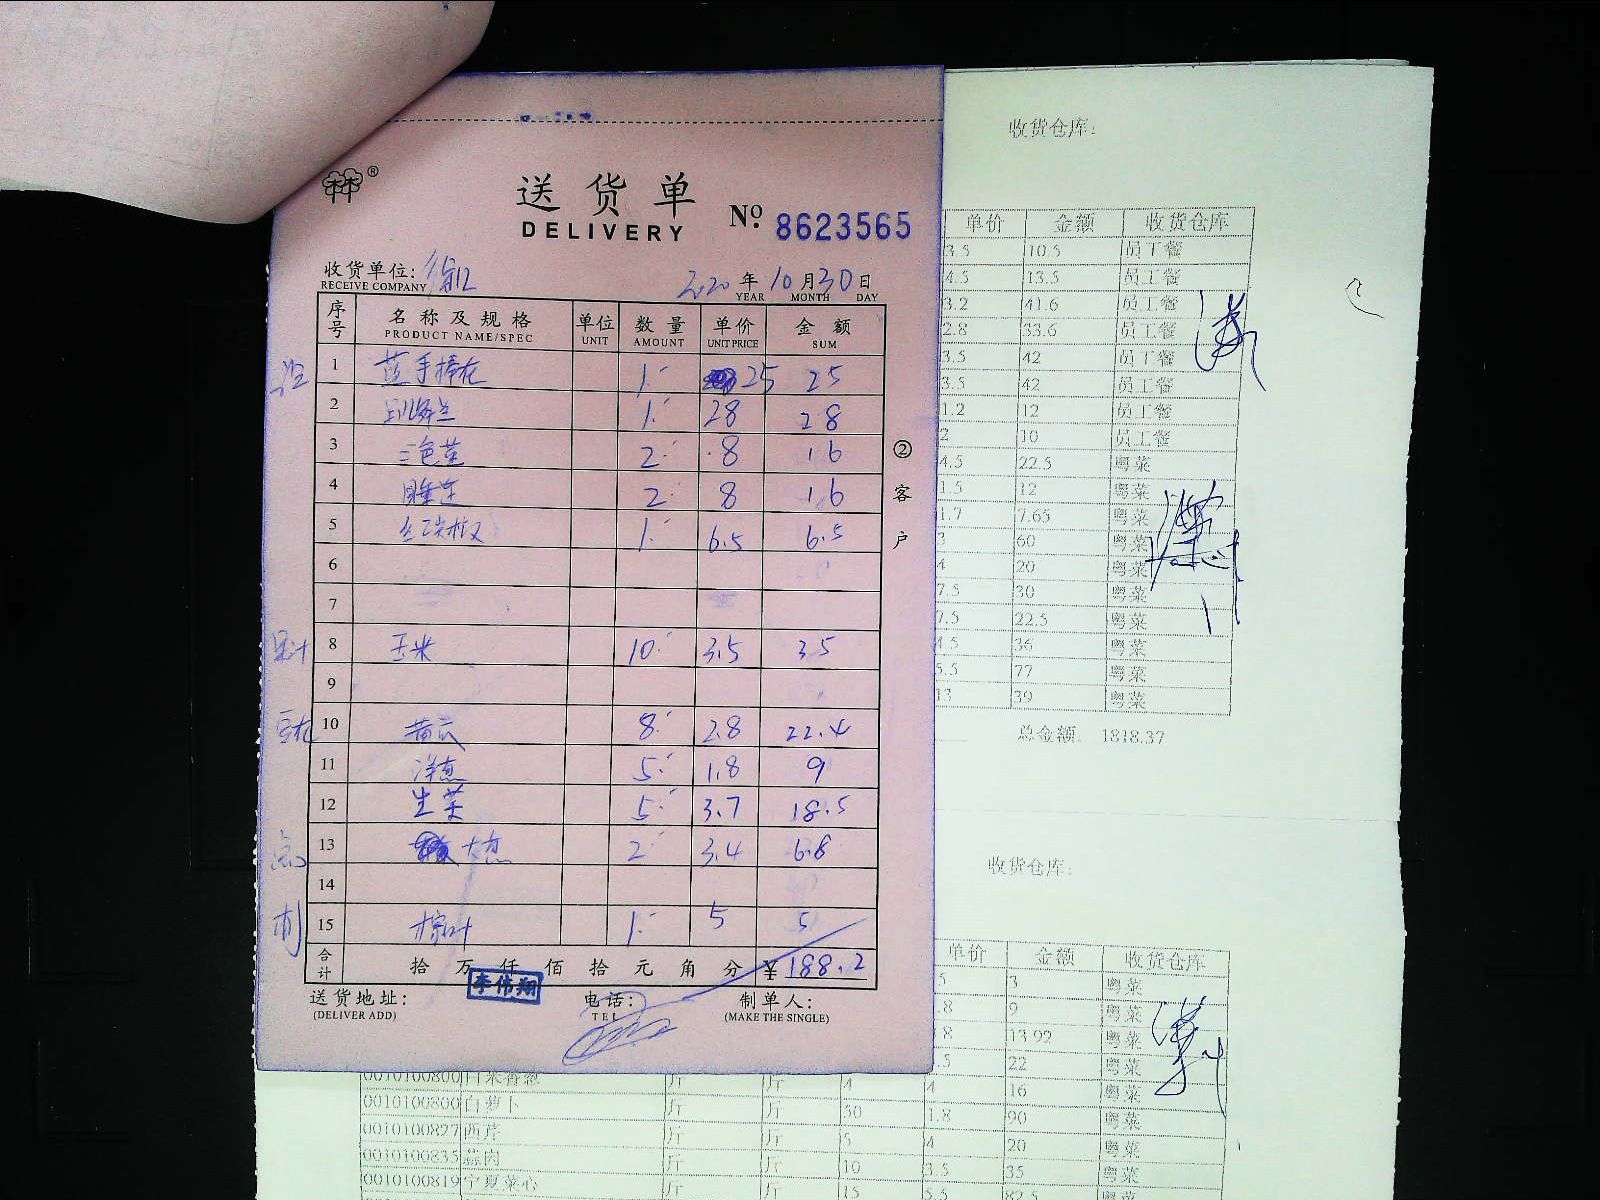 送货单
DELIVERY
№ 8623565
收货单位:
RECEIVE COMPANY
2020年10月30日
YEAR MONTH DAY
序号 名称及规格 单位 数量 单价 金额
PRODUCT NAME/SPEC UNIT AMOUNT UNIT PRICE SUM
1 1 25 25
2 1 28 28
3 三色堇 2 8 16
4 2 8 16
5 1 6.5 6.5
6
7
8 玉米 10 3.5 35
9
10 黄瓜 8 2.8 22.4
11 洋葱 5 1.8 9
12 生菜 5 3.7 18.5
13 大葱 2 3.4 6.8
14
15 粽叶 1 5 5
合计 拾 万 仟 佰 拾 元 角 分 ¥ 188.2
李伟翔
送货地址: 电话: 制单人:
(DELIVER ADD) TEL (MAKE THE SINGLE)
②客户
收货仓库:
单价 金额 收货仓库
3.5 10.5 员工餐
4.5 13.5 员工餐
3.2 41.6 员工餐
2.8 33.6 员工餐
3.5 42 员工餐
3.5 42 员工餐
1.2 12 员工餐
2 10 员工餐
4.5 22.5 粤菜
1.5 12 粤菜
1.7 7.65 粤菜
3 60 粤菜
4 20 粤菜
7.5 30 粤菜
7.5 22.5 粤菜
4.5 36 粤菜
5.5 77 粤菜
13 39 粤菜
总金额: 1818.37
收货仓库:
单价 金额 收货仓库
5 3 粤菜
.8 9 粤菜
8 13.92 粤菜
.5 22 粤菜
0010100800 斤 斤 4 4 16 粤菜
0010100800 白萝卜 斤 斤 50 1.8 90 粤菜
0010100827 西芹 斤 斤 5 4 20 粤菜
0010100835 蒜肉 斤 斤 10 3.5 35 粤菜
0010100819 宁夏菜心 斤 斤 15 5.5 82.5 粤菜